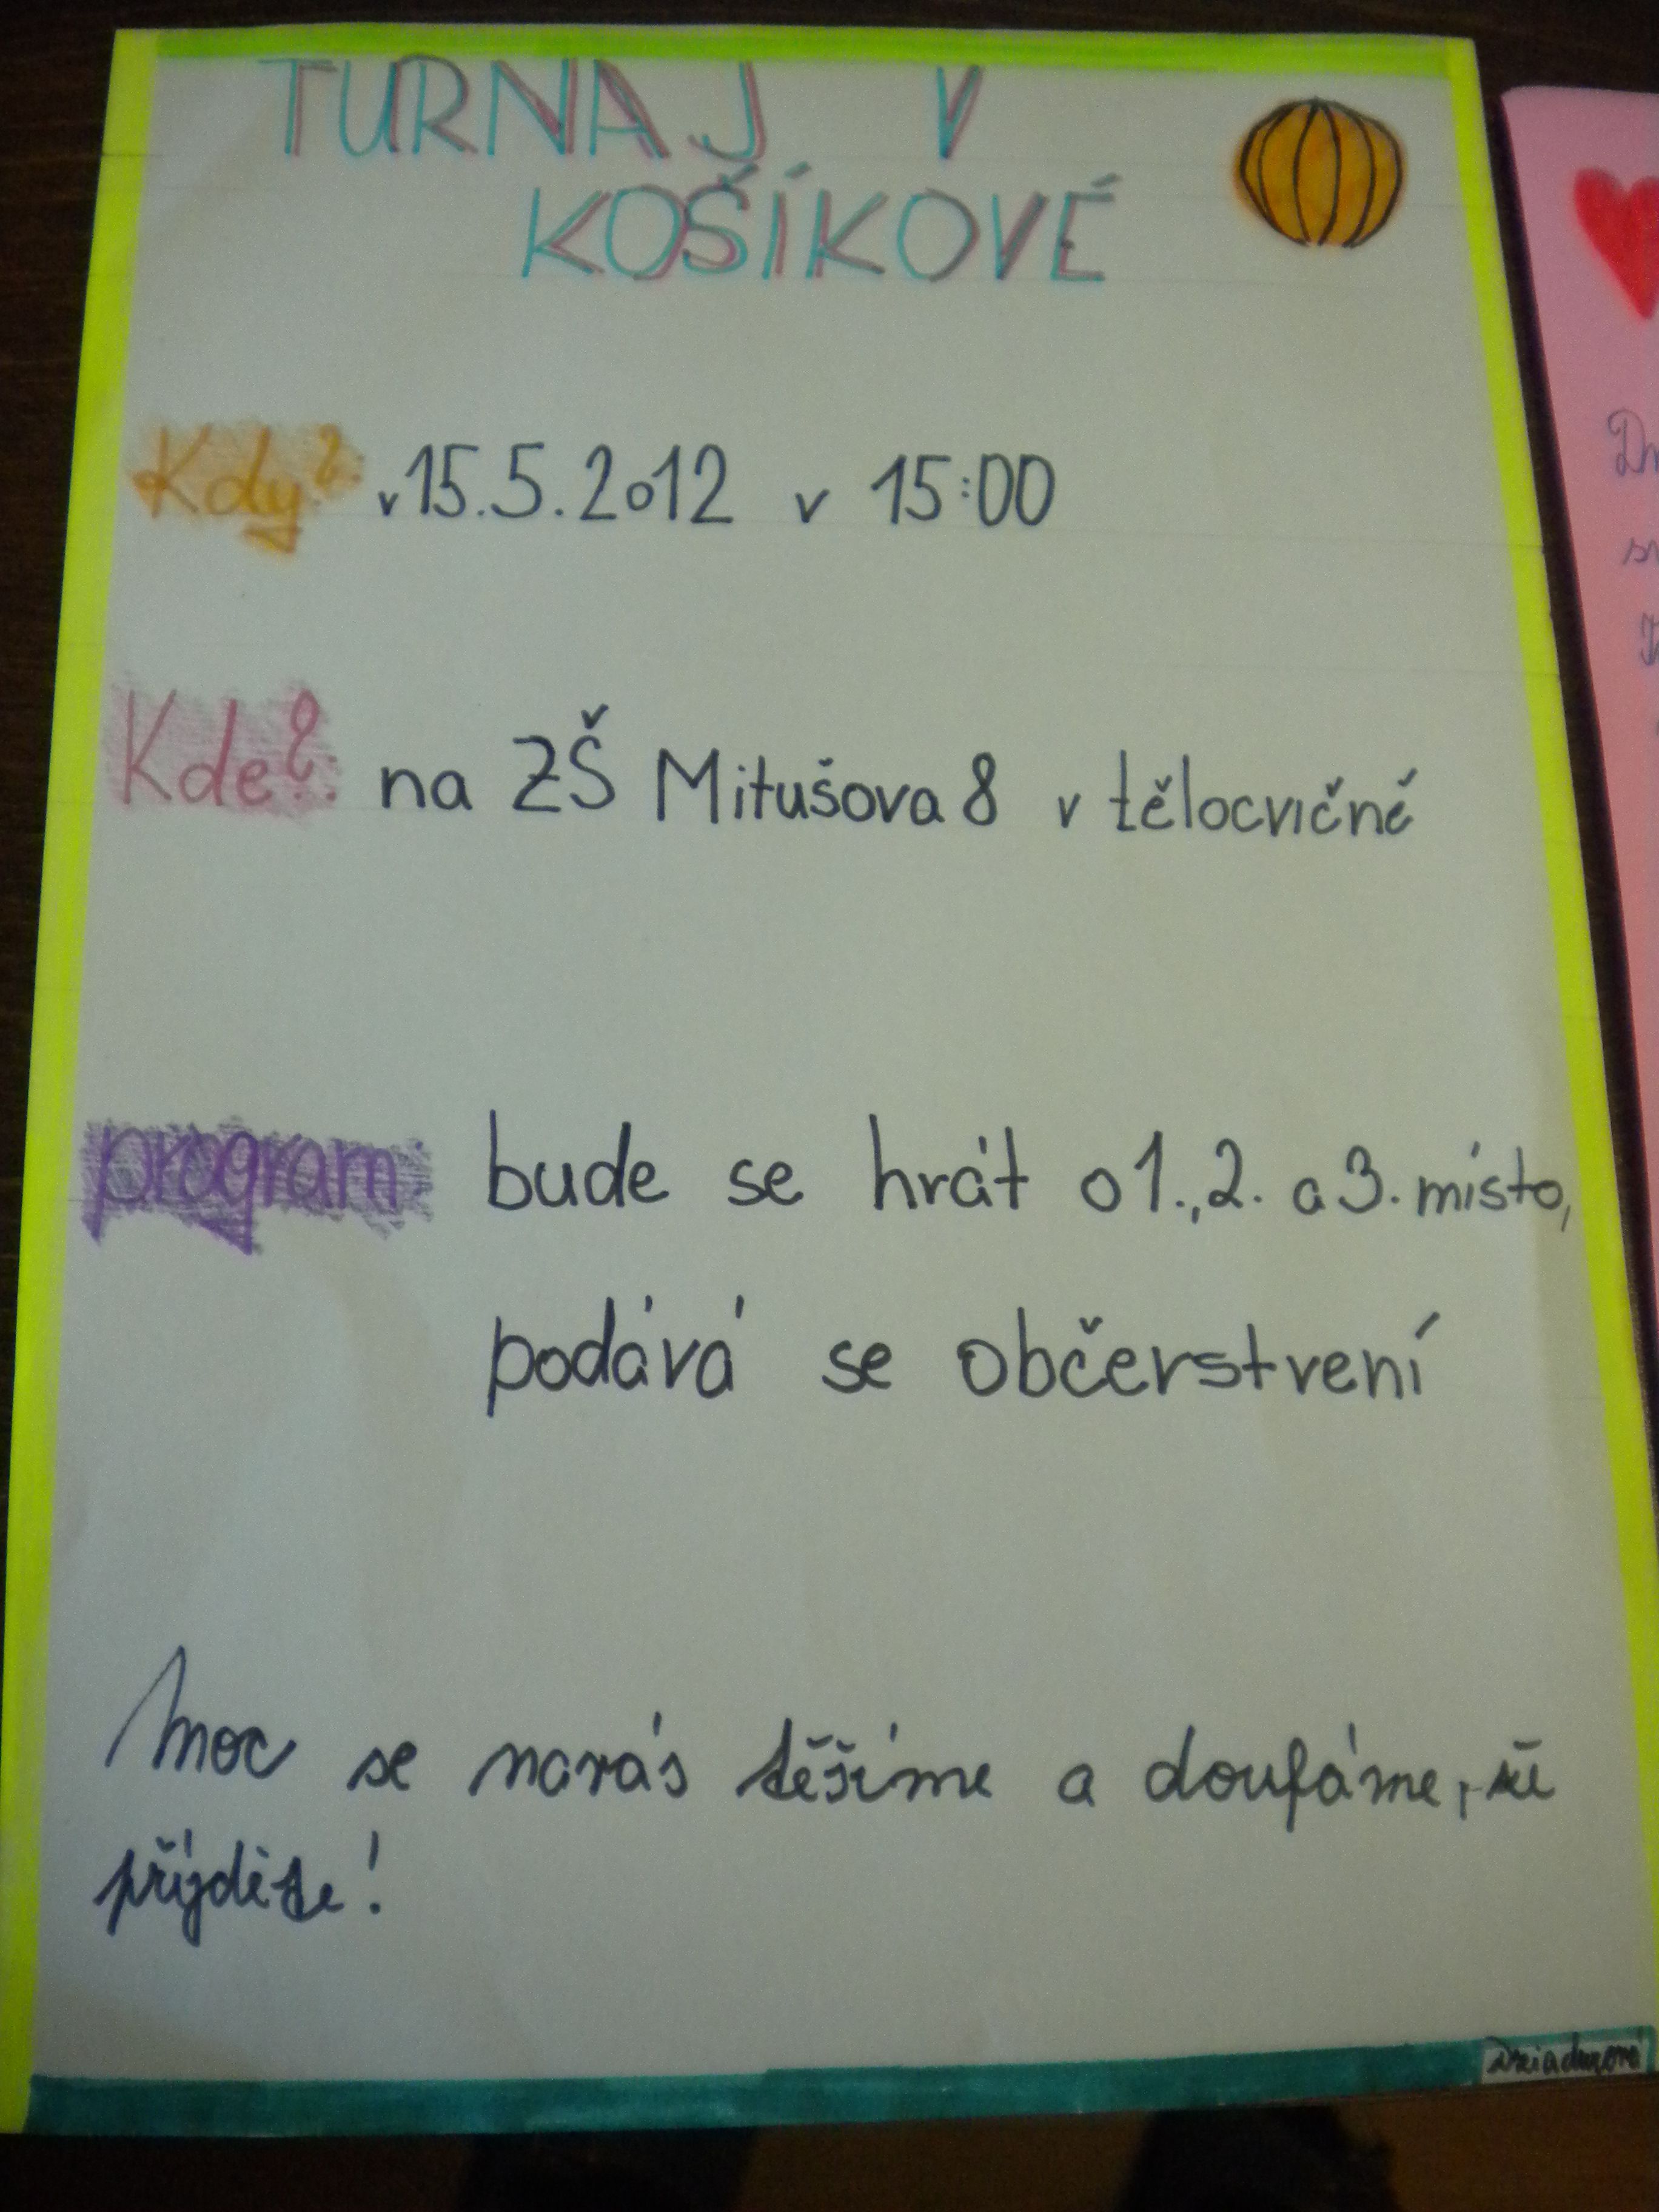 TURNAJ V
KOŠÍKOVÉ
Kdy? v 15.5.2012 v 15:00
Kde?: na ZŠ Mitušova 8 v tělocvičné
program: bude se hrát o 1., 2. a 3. místo,
podává se občerstvení
Moc se navás těšíme a doufáme, že
příjdete!